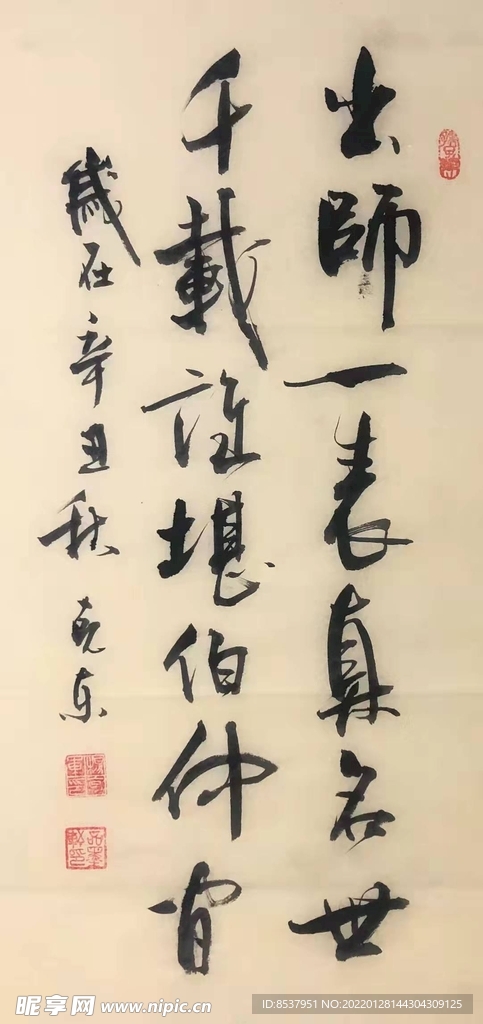 出師一表真名世
千載誰堪伯仲間
歲在辛丑秋克東
昵享网 www.nipic.cn
ID:8537951 NO:20220128144304309125